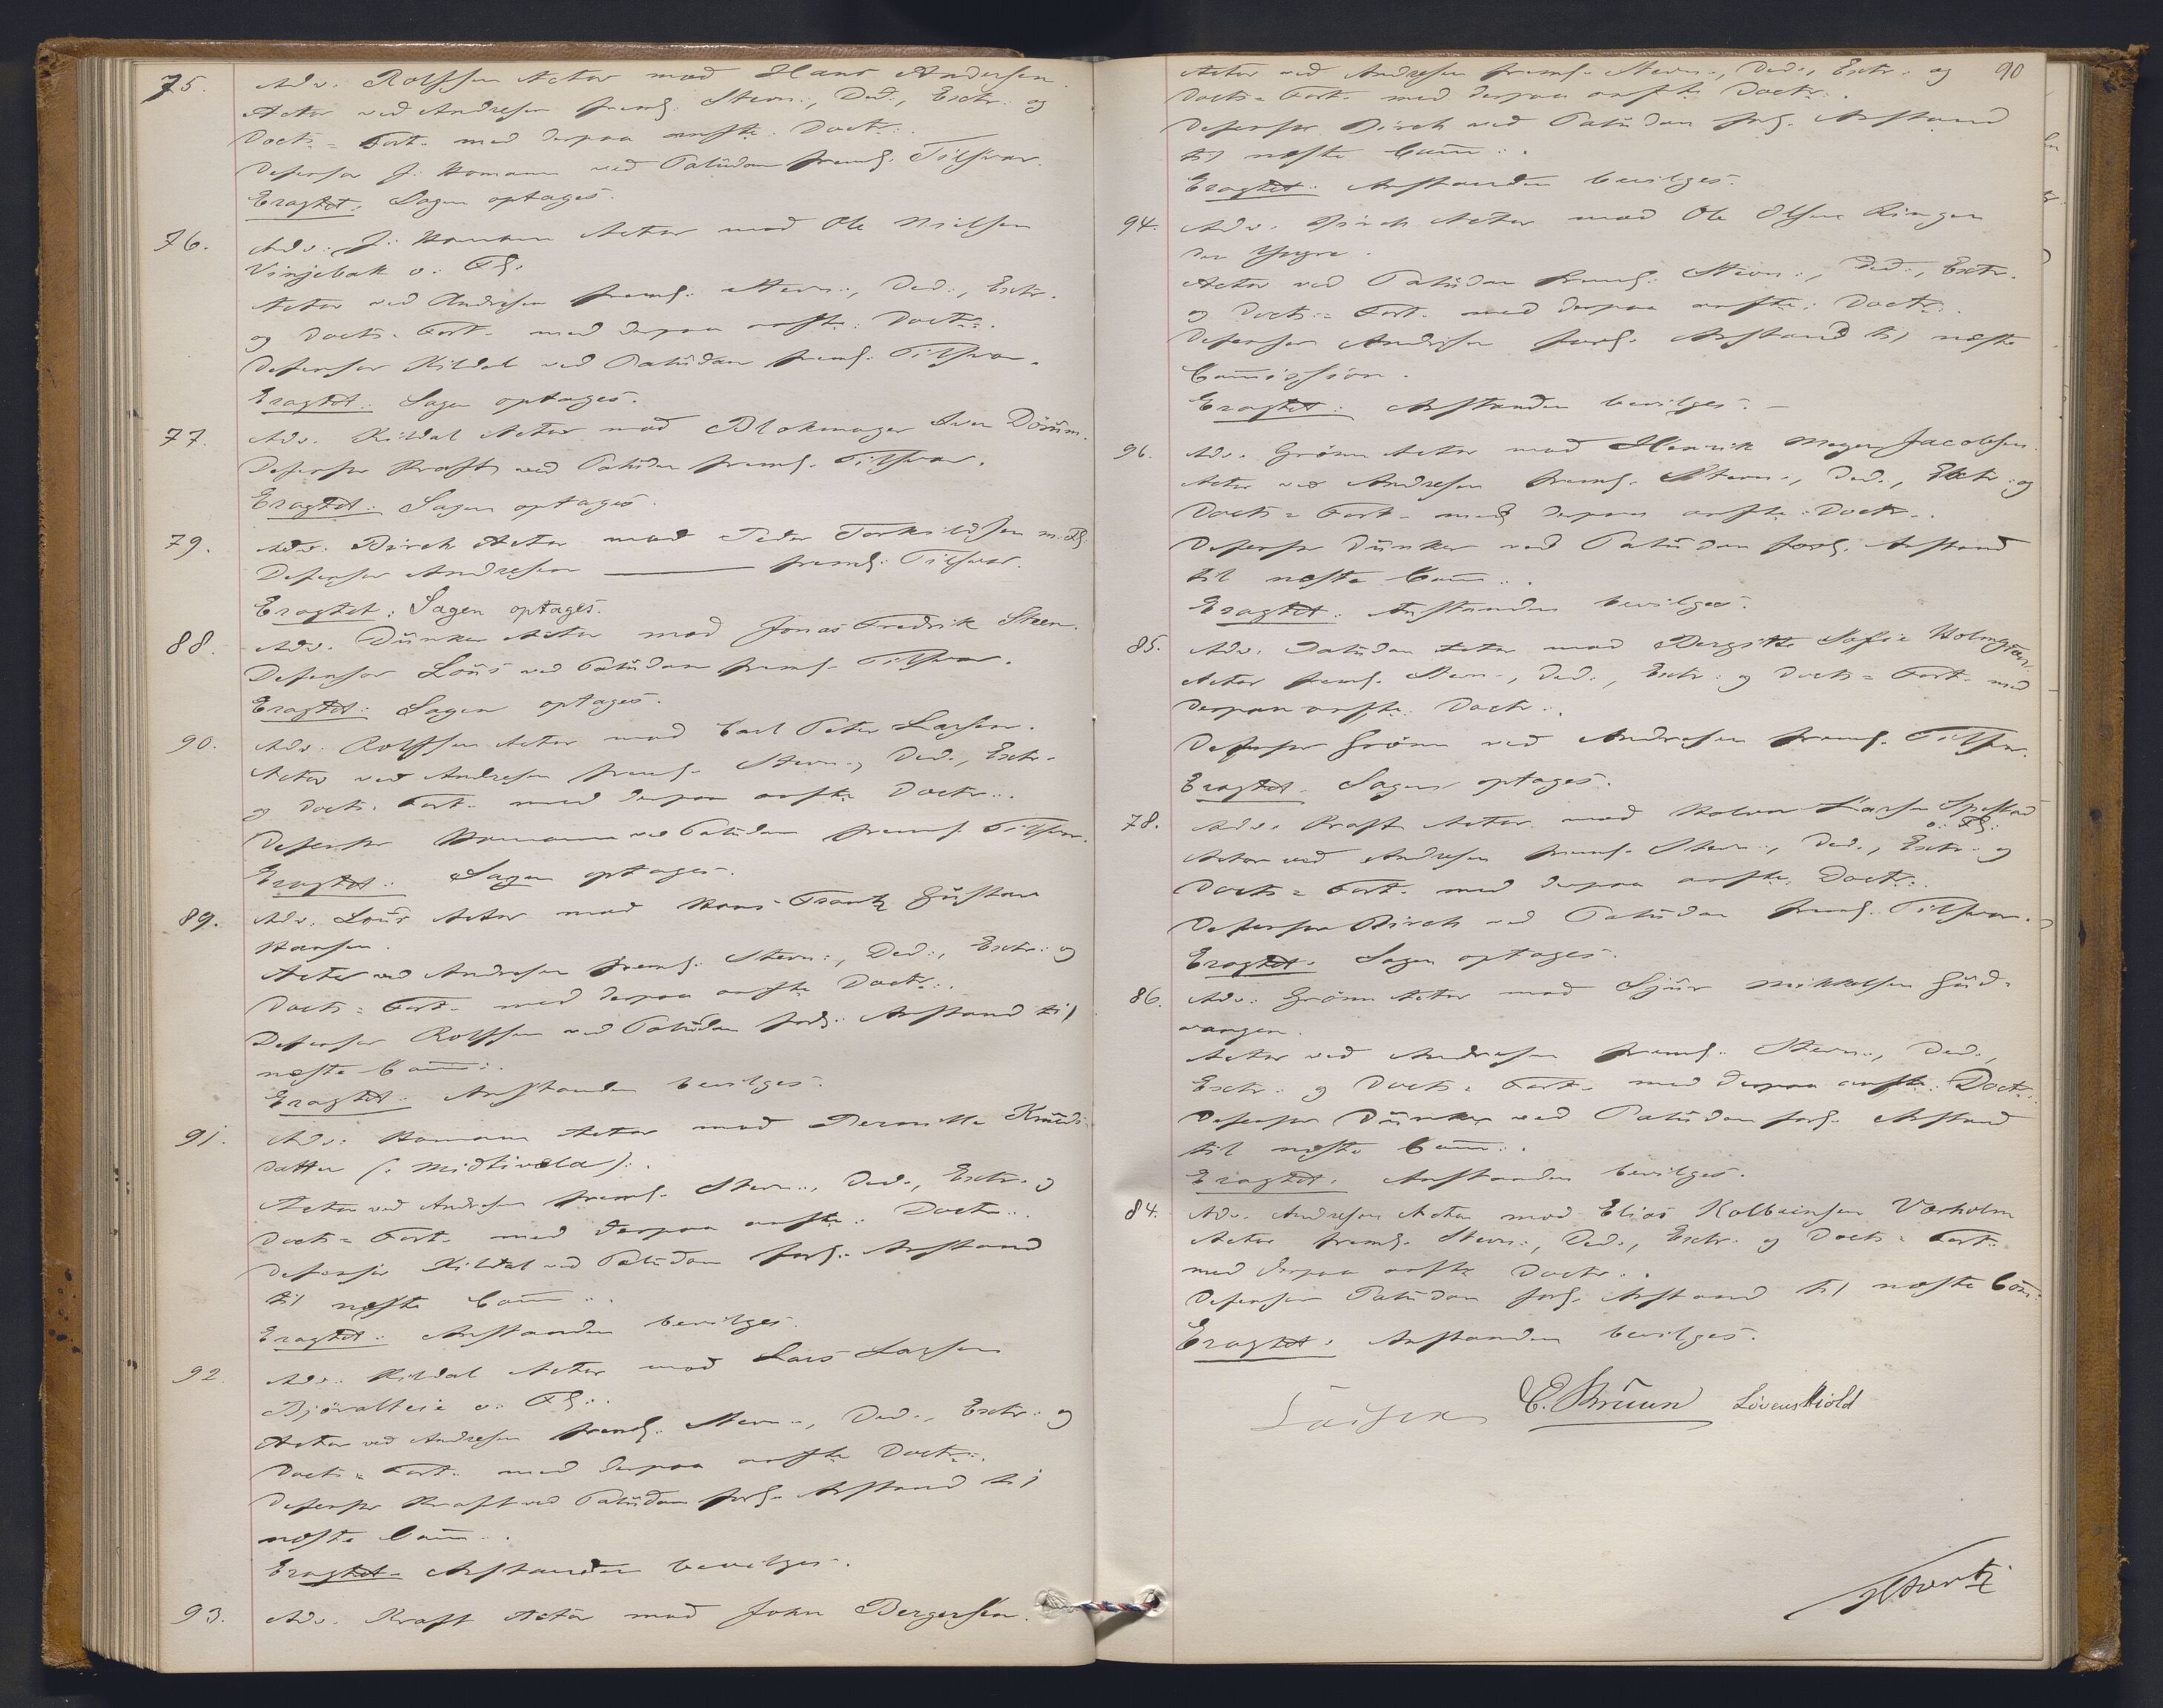 75. Adv. Rolfsen Actor mod Hans Andersen.
Actor ved Andresen freml. Stevn:, Ded:, Extr: og
Docts= Fort. med derpaa anfte: Doctr:.
Defensor J. Homann ved Paludan freml. Tilsvar.
Eragtet: Sagen optages.
76. Adv. J. Homann Actor mod Ole Nielsen
Vinjebak o: Fl.
Actor ved Andresen freml: Stevn:, Ded:, Extr.
og Docts. Fort. med derpaa anfte: Doctr:.
Defensor Kildal ved Paludan freml. Tilsvar.
Eragtet: Sagen optages.
77. Adv. Kildal Actor mod Blokmager Iver Döium.
Defensor Kraft ved Paludan freml. Tilsvar.
Eragtet: Sagen optages.
79. Adv. Birch Actor mod Peder Torkildsen m. Fl.
Defensor Andresen ——— freml: Tilsvar.
Eragtet: Sagen optages.
88. Adv. Dunker Actor mod Jonas Fredrik Steen.
Defensor Lous ved Paludan freml. Tilsvar.
Eragtet: Sagen optages.
90. Adv. Rolfsen Actor mod Carl Peter Larsen.
Actor ved Andresen freml. Stevn., Ded., Extr.
og Docts. Fort. med derpaa anfte Doctr:.
Defensor Homann ved Paludan freml. Tilsvar.
Eragtet: Sagen optages.
89. Adv. Lous Actor mod Hans Frantz Gustav
Hansen.
Actor ved Andresen freml: Stevn:, Ded:, Extr: og
Docts= Fort. med derpaa anfte Doctr:.
Defensor Rolfsen ved Paludan forl: Anstand til
næste Comm:.
Eragtet: Anstanden bevilges.
91. Adv: Homann Actor mod Pernille Knuds
datter (: Midtivela):.
Actor ved Andresen freml. Stevn:, Ded., Extr. og
Docts= Fort. med derpaa anfte: Doctr:.
Defensor Kildal ved Paludan forl. Anstand
til næste Comm:.
Eragtet: Anstanden bevilges.
92. Adv. Kildal Actor mod Lars Larsen
Björalteie o: Fl:.
Actor ved Andresen freml. Stevn:, Ded., Extr. og
Docts= Fort. med derpaa anfte Doctr:.
Defensor Kraft ved Paludan forl. Anstand til
næste Comm:.
Eragtet. Anstanden bevilges.
93. Adv. Kraft Actor mod John Bergersen.
90
Actor ved Andresen freml. Stevn:, Ded., Extr. og
Docts= Fort. med derpaa anfte Doctr:.
Defensor Birch ved Paludan forl. Anstand
til næste Comm:.
Eragtet: Anstanden bevilges.
94. Adv. Birch Actor mod Ole Olsen Ringen
den Yngre.
Actor ved Paludan freml: Stevn:, Ded:, Extr.
og Docts:= Fort. med derpaa anfte: Doctr:.
Defensor Andresen forl. Anstand til næste
Commission.
Eragtet: Anstanden bevilges.
96. Adv. Grönn Actor mod Henrik Meyer Jacobsen.
Actor ved Andresen freml. Stevn:, Ded., Extr: og
Docts= Fort. med derpaa anfte: Doctr:.
Defensor Dunker ved Paludan forl. Anstand
til næste Comm:.
Eragtet: Anstanden bevilges.
85. Adv. Paludan Actor mod Bergitte Sofie Holmgren.
Actor freml. Stevn:, Ded., Extr: og Docts= Fort. med
derpaa anfte: Doctr:.
Defensor Grönn ved Andresen freml. Tilsvar.
Eragtet. Sagen optages.
78. Adv. Kraft Actor mod Halvor Larsen
o: Fl:
Actor ved Andresen freml. Stevn:, Ded., Extr. og
Docts= Fort. med derpaa anfte. Doctr:.
Defensor Birch ved Paludan freml. Tilsvar.
Eragtet. Sagen optages.
86. Adv: Grönn Actor mod Sjur Mikkelsen Gud=
vangen.
Actor ved Andresen freml. Stevn:, Ded.,
Extr: og Docts= Fort. med derpaa anfte: Doctr:.
Defensor Dunker ved Paludan forl. Anstand
til næste Comm:.
Eragtet. Anstanden bevilges.
84. Adv. Andresen Actor mod Elias Kolbeinsen Varholm
Actor freml. Stevn:, Ded., Extr. og Docts= Fort.
med derpaa anfte Doctr:.
Defensor Paludan forl. Anstand til næste Com:
Eragtet: Anstanden bevilges.
E. Bruun Lövenskiold